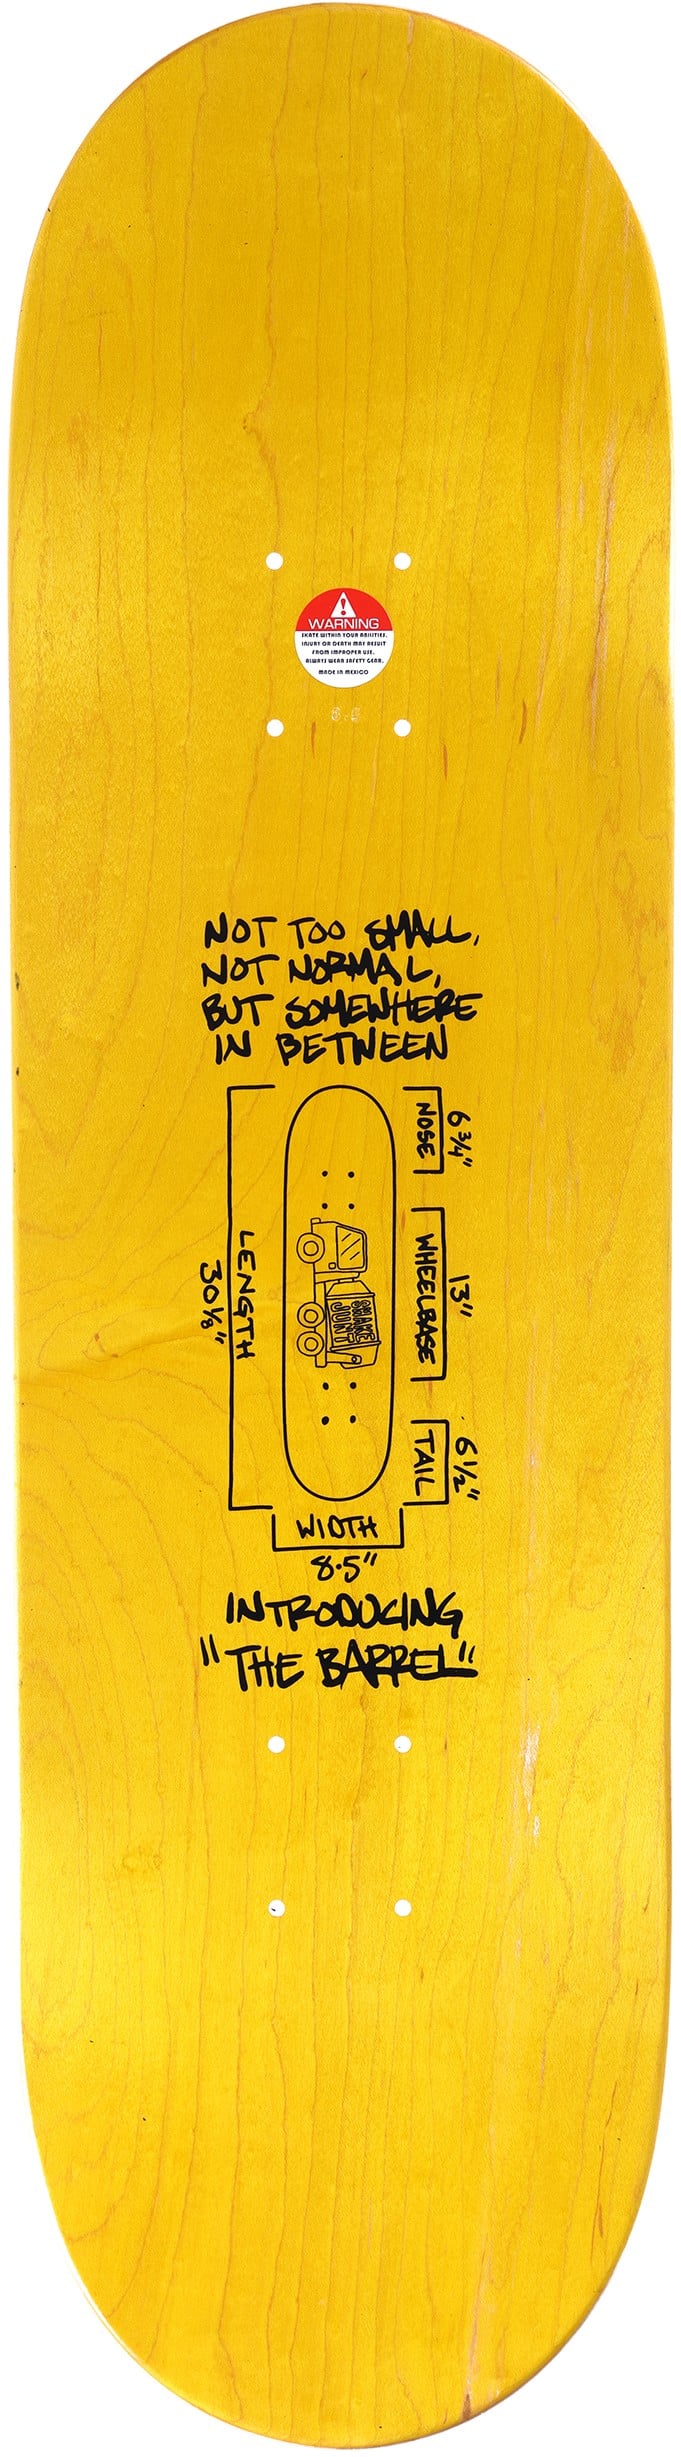 WARNING
SKATE WITHIN YOUR ABILITIES.
INJURY OR DEATH MAY RESULT
FROM IMPROPER USE.
ALWAYS WEAR SAFETY GEAR.
MADE IN MEXICO
NOT TOO SMALL,
NOT NORMAL,
BUT SOMEWHERE
IN BETWEEN
NOSE
6 3/4"
LENGTH
30 1/8"
WHEELBASE
13"
SHAKE
JUNT
TAIL
6 1/2"
WIDTH
8.5"
INTRODUCING
"THE BARREL"